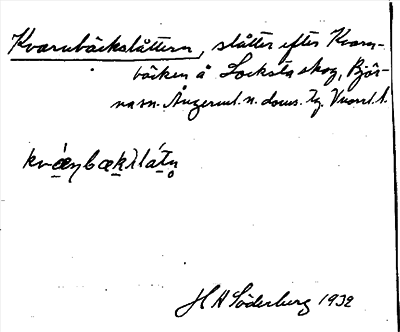 Kvarnbäckslåttern, slåtter efter Kvarn-
bäcken å Locksta skog, Björ-
na sn. Ångerml. n. doms. Tg. Vnorrl. l.
H A Söderberg 1932